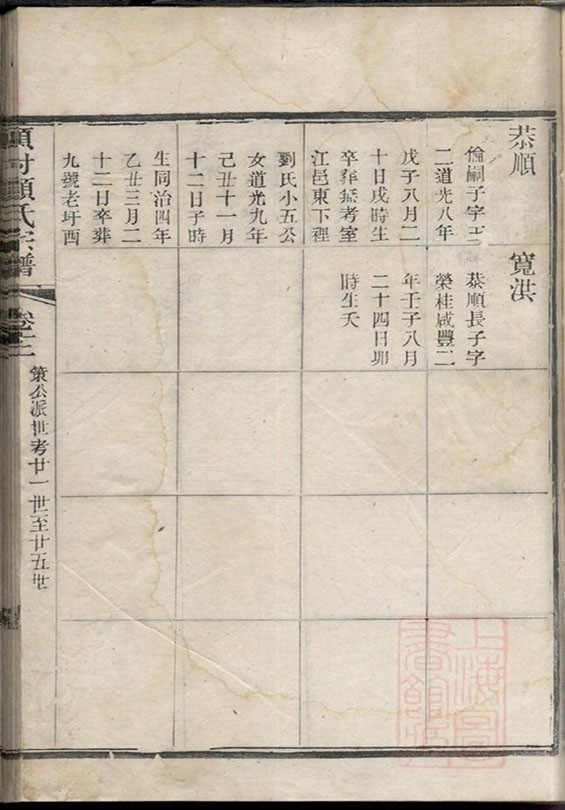 恭順
倫嗣子字
二道光八年
戊子八月二
十日戌時生
卒葬無考室
江邑東下裡
劉氏小五公
女道光九年
己丑十一月
十二日子時
生同治四年
乙丑三月二
十二日卒葬
九號老圩酉
寬洪
恭順長子字
榮桂咸豐二
年壬子八月
二十四日卯
時生夭
顧氏宗譜
卷十二
策公派世考廿一世至廿五世
上海圖書館藏